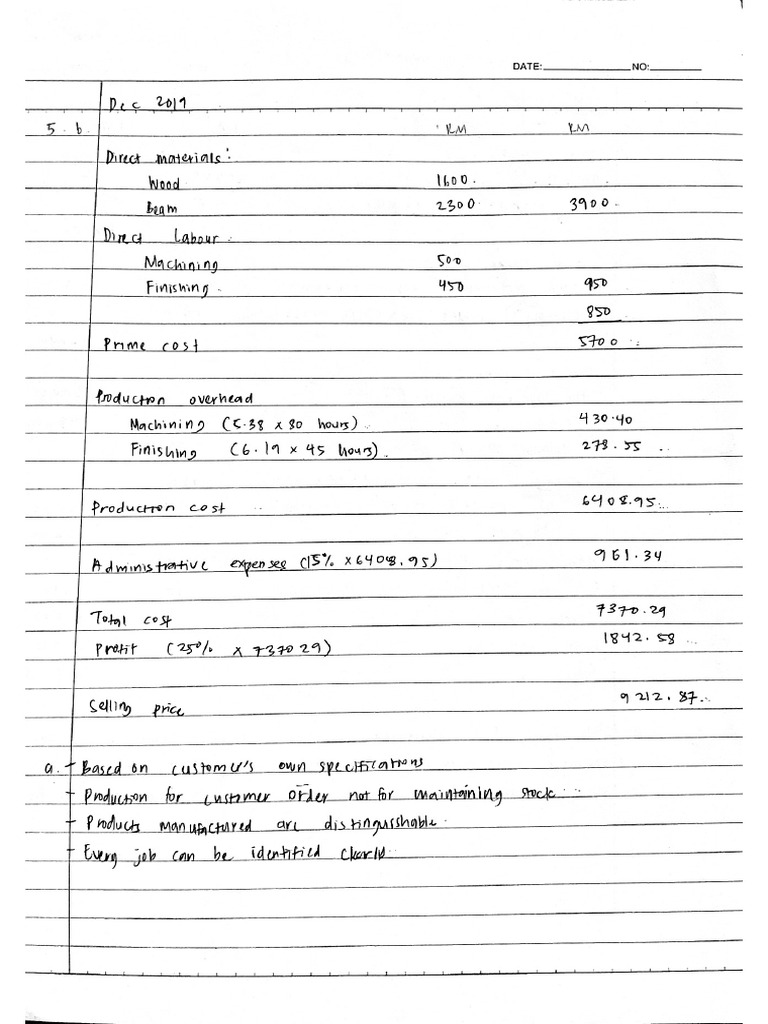 DATE:__________NO:______
Dec 2019
5. b. RM RM
Direct materials:
Wood 1600.
Beam 2300 3900.
Direct Labour:
Machining 500
Finishing 450 950
850
Prime cost 5700
Production overhead
Machining (5.38 x 80 hours) 430.40
Finishing (6.19 x 45 hours) 278.55
Production cost 6408.95
Administrative expenses (15% x 6408.95) 961.34
Total cost 7370.29
Profit (25% x 7370 29) 1842.58
Selling price 9212.87
a. - Based on customer's own specifications
- Production for customer order not for maintaining stock
- Products manufactured are distinguishable
- Every job can be identified clearly